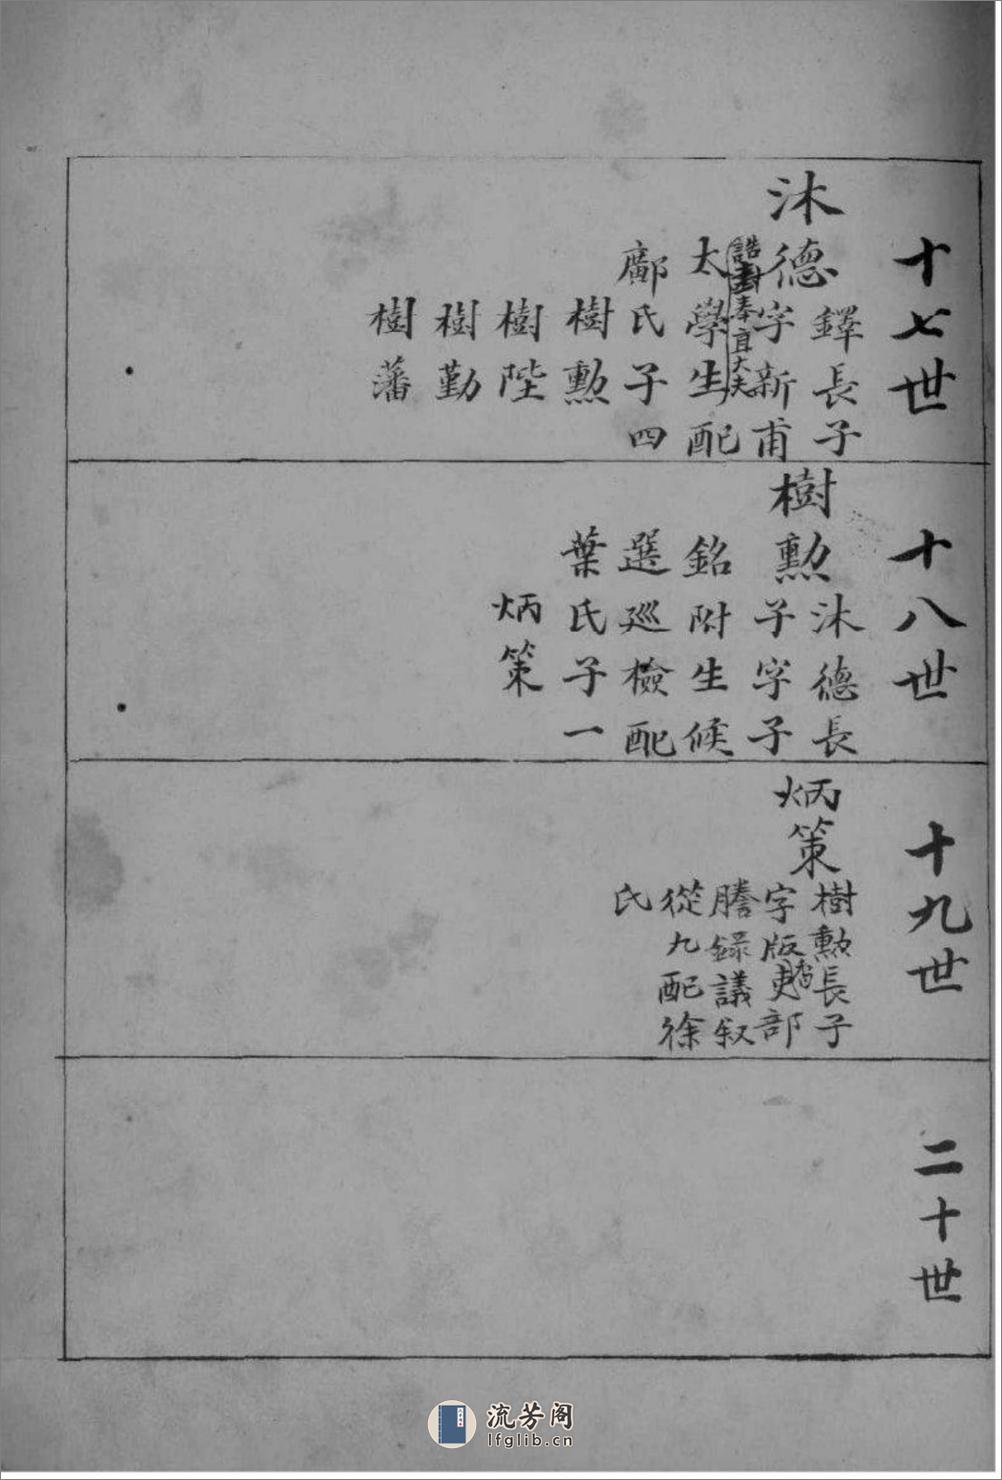 十七世
沐德
鐸長子
字新甫
誥封奉直大夫
太學生配
鄺氏子四
樹勲
樹陛
樹勤
樹藩
十八世
樹勲
沐德長
子字子
銘附生候
選巡檢配
葉氏子一
炳策
十九世
炳策
樹勲長子
字版吏部
謄録議叙
從九配徐
氏
二十世
流芳阁
lfglib.cn